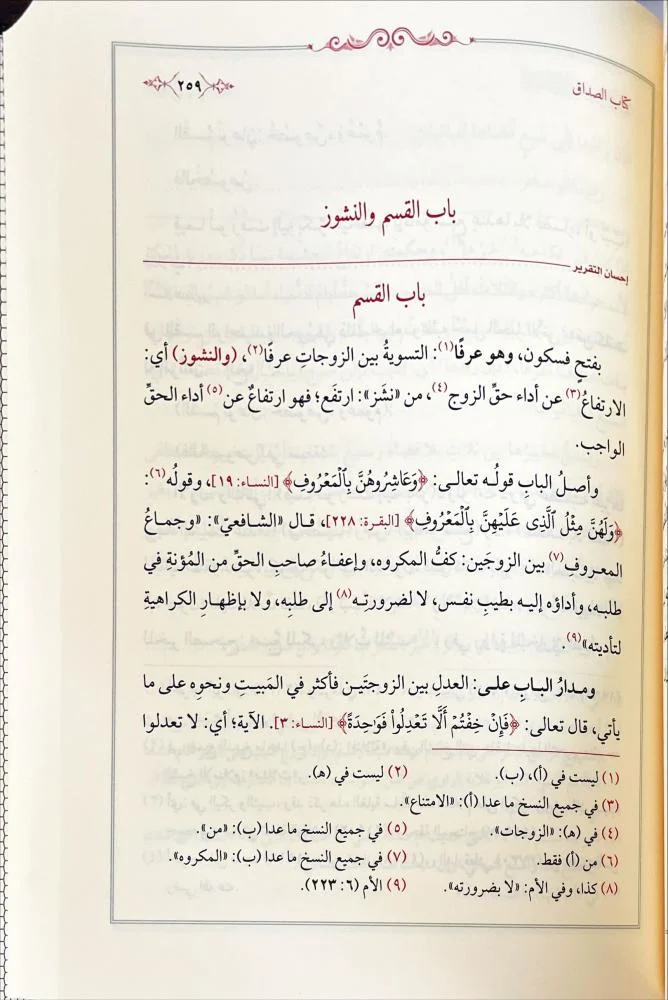 كتاب الصداق
٢٥٩
باب القسم والنشوز
إحسان التقرير
باب القسم
بفتحٍ فسكون، وهو عرفًا(١): التسويةُ بين الزوجاتِ عرفًا(٢)، (والنشوز) أي:
الارتفاعُ(٣) عن أداء حقِّ الزوج(٤)، من «نشَز»: ارتفَع؛ فهو ارتفاعٌ عن(٥) أداء الحقِّ
الواجب.
وأصلُ البابِ قولُه تعالى: ﴿وَعَاشِرُوهُنَّ بِالْمَعْرُوفِ﴾ [النساء: ١٩]، وقولُه(٦):
﴿وَلَهُنَّ مِثْلُ ٱلَّذِى عَلَيْهِنَّ بِٱلْمَعْرُوفِ﴾ [البقرة: ٢٢٨]، قال «الشافعيّ»: «وجماعُ
المعروفِ(٧) بين الزوجَين: كفُّ المكروه، وإعفاءُ صاحبِ الحقِّ من المُؤنةِ في
طلبه، وأداؤه إليه بطيبِ نفس، لا لضرورتِه(٨) إلى طلبِه، ولا بإظهارِ الكراهيةِ
لتأديته»(٩).
ومدارُ البابِ على: العدلِ بين الزوجتَين فأكثر في المَبيتِ ونحوِه على ما
يأتي، قال تعالى: ﴿فَإِنْ خِفْتُمْ أَلَّا تَعْدِلُوا۟ فَوَٰحِدَةً﴾ [النساء: ٣]. الآية؛ أي: لا تعدلوا
(١) ليست في (أ)، (ب). (٢) ليست في (هـ).
(٣) في جميع النسخ ما عدا (أ): «الامتناع».
(٤) في (هـ): «الزوجات». (٥) في جميع النسخ ما عدا (ب): «من».
(٦) من (أ) فقط. (٧) في جميع النسخ ما عدا (ب): «المكروه».
(٨) كذا، وفي الأم: «لا بضرورته». (٩) الأم (٦: ٢٢٣).